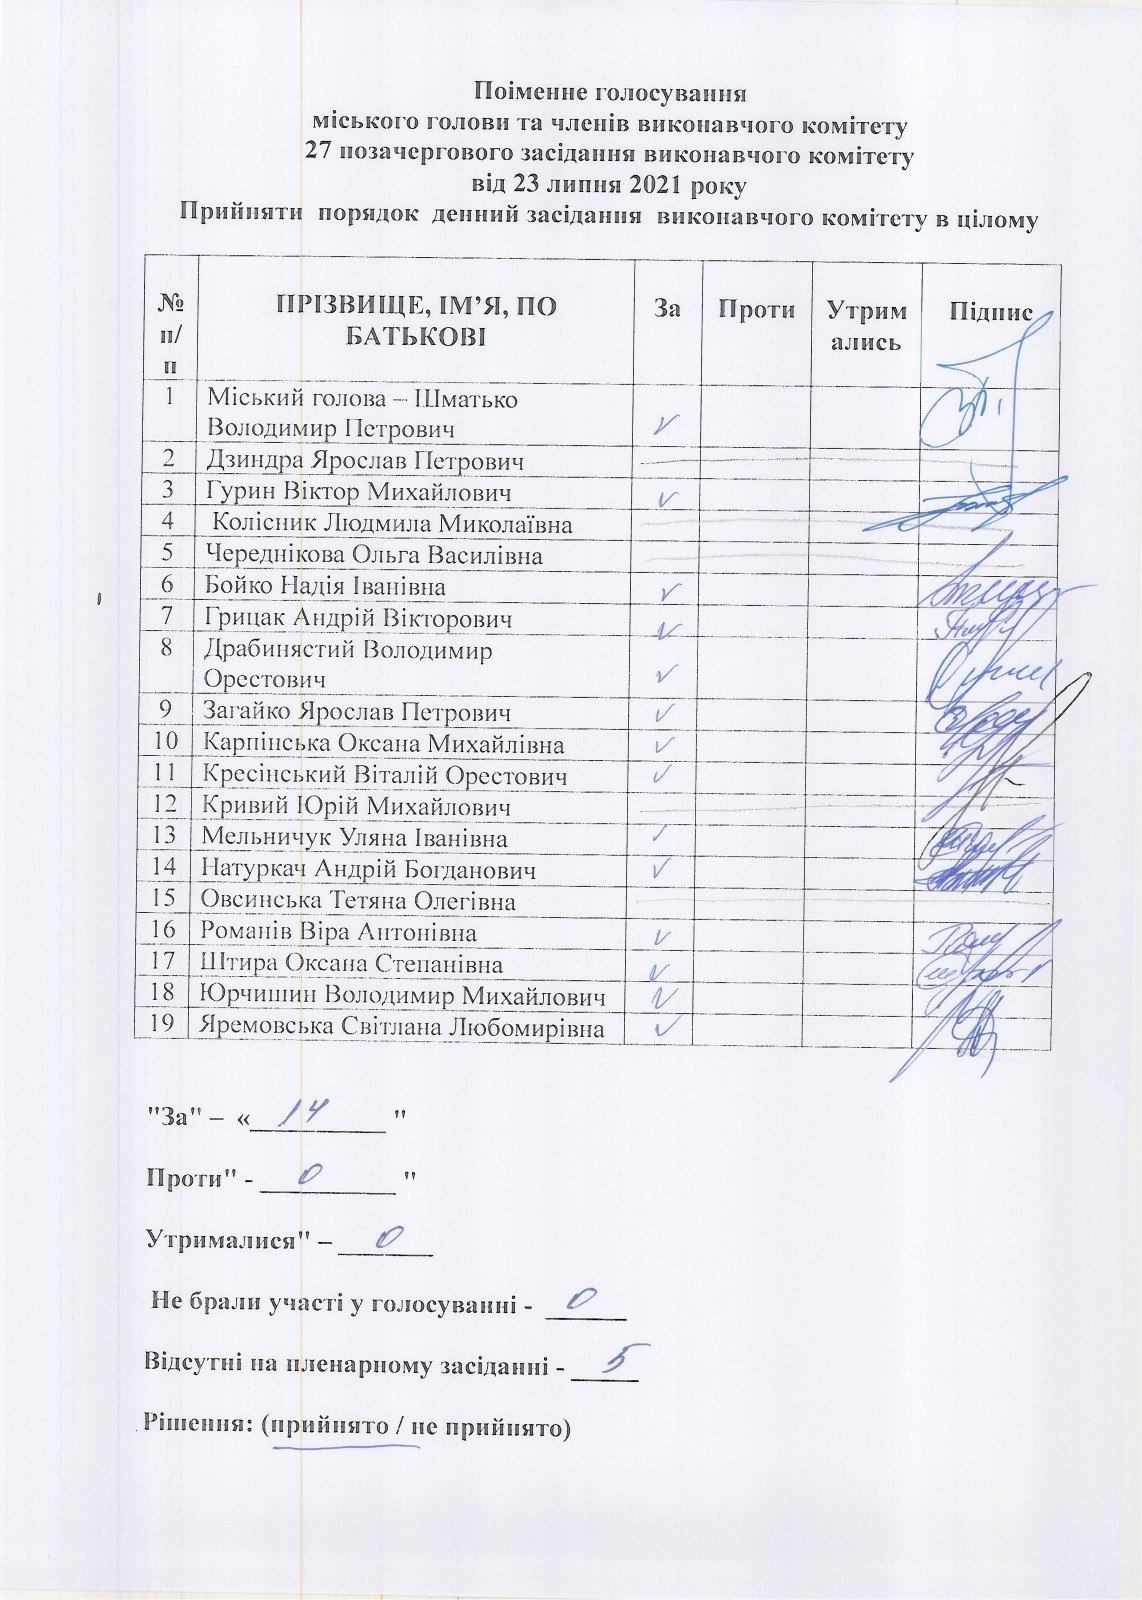 Поіменне голосування
міського голови та членів виконавчого комітету
27 позачергового засідання виконавчого комітету
від 23 липня 2021 року
Прийняти порядок денний засідання виконавчого комітету в цілому
№ п/п ПРІЗВИЩЕ, ІМ’Я, ПО БАТЬКОВІ За Проти Утрим ались Підпис
1 Міський голова – Шматько
Володимир Петрович ✓
2 Дзиндра Ярослав Петрович
3 Гурин Віктор Михайлович ✓
4 Колісник Людмила Миколаївна
5 Череднікова Ольга Василівна
6 Бойко Надія Іванівна ✓
7 Грицак Андрій Вікторович ✓
8 Драбинястий Володимир
Орестович ✓
9 Загайко Ярослав Петрович ✓
10 Карпінська Оксана Михайлівна ✓
11 Кресінський Віталій Орестович ✓
12 Кривий Юрій Михайлович
13 Мельничук Уляна Іванівна ✓
14 Натуркач Андрій Богданович ✓
15 Овсинська Тетяна Олегівна
16 Романів Віра Антонівна ✓
17 Штира Оксана Степанівна ✓
18 Юрчишин Володимир Михайлович ✓
19 Яремовська Світлана Любомирівна ✓
"За" – «14"
Проти" - 0 "
Утрималися" – 0
Не брали участі у голосуванні - 0
Відсутні на пленарному засіданні - 5
Рішення: (прийнято / не прийнято)